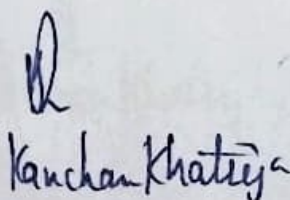 Kanchan Khatriya